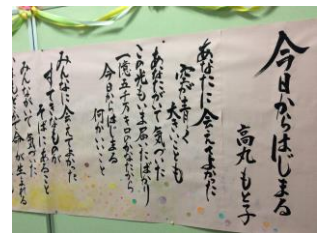 今日からはじまる
高丸 もと子
あなたに会えてよかった
空が青く
大きいことも
あなたがいて気づいた
この光もいま届いたばかり
一億五千万キロのかなたから
今日からはじまる
何かいいこと
みんなに会えてよかった
すてきなものが
そばにあること
みんながいて気づいた
が生まれる